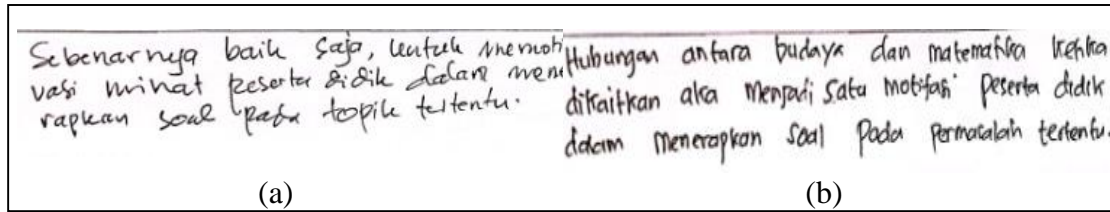 Sebenarnya baik saja, untuk memoti
vasi minat peserta didik dalam mene
rapkan soal pada topik tertentu.
(a)
Hubungan antara budaya dan matematika ketika
dikaitkan aka menjadi satu motifasi peserta didik
dalam menerapkan soal pada permasalah tertentu.
(b)